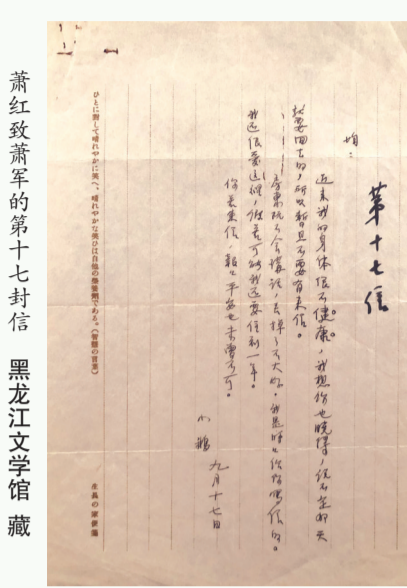 第十七信
均：
近来我的身体很不健康，我想你也晓得，说不定那天
就要回去的，所以暂且不要有来信。
房东既不会讲话，丢掉了不大好。我是时时给你写信的。
我还很爱这里，假若可能我还要住到一年。
你若来信，报报平安也未曾不可。
小鹅 九月十七日
ひとに對して晴れやかに笑へ、晴れやかな笑ひは自他の榮養劑である。（智慧の言葉）
生長の家
萧红致萧军的第十七封信 黑龙江文学馆 藏